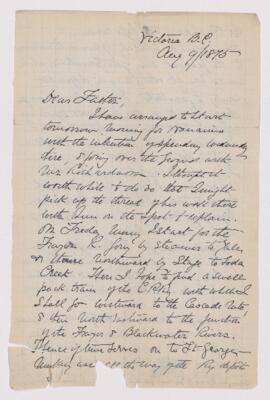 Victoria B.C.
Aug 9/1875
Dear Father,
I have arranged to start
tomorrow morning for Nanaimo
with the intention of spending
there, & going over the ground with
Mr Richardson. I thought it
worth while to do so that I might
pick up the thread of his work there
with him on the Spot to explain.
On Friday Morng I start for the
Fraser R. going by steamer to Yale
& thence Northward by Stage to Soda
Creek. There I hope to find a small
pack train of the C.P.Ry. with which I
shall go westward to the Cascade
& then North Eastward to the junction
of the Fraser & Blackwater Rivers.
Thence if time serves on to Ft George
all the way of the Ry depots